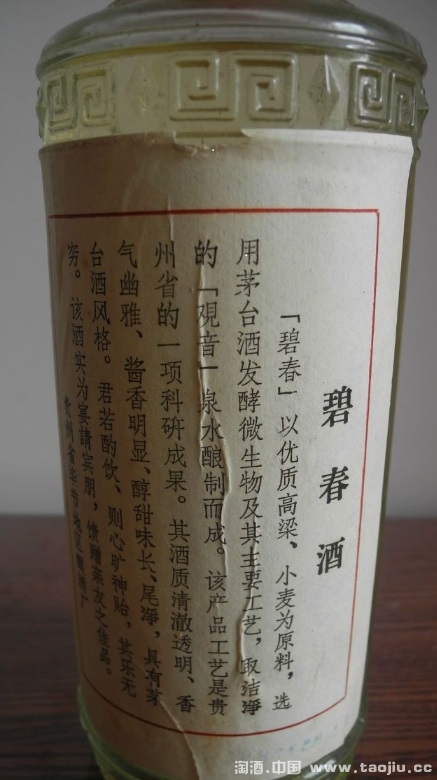 碧春酒
「碧春」以优质高梁、小麦为原料，选
用茅台酒发酵微生物及其主要工艺，取洁净
的「观音」泉水酿制而成。该产品工艺是贵
州省的一项科研成果。其酒质清澈透明、香
气幽雅、酱香明显、醇甜味长、尾净，具有茅
台酒风格。君若酌饮、则心旷神贻，其乐无
穷。该酒实为宴請宾朋，馈赠亲友之佳品。
贵州省毕节地区
淘酒.中国 www.taojiu.cc